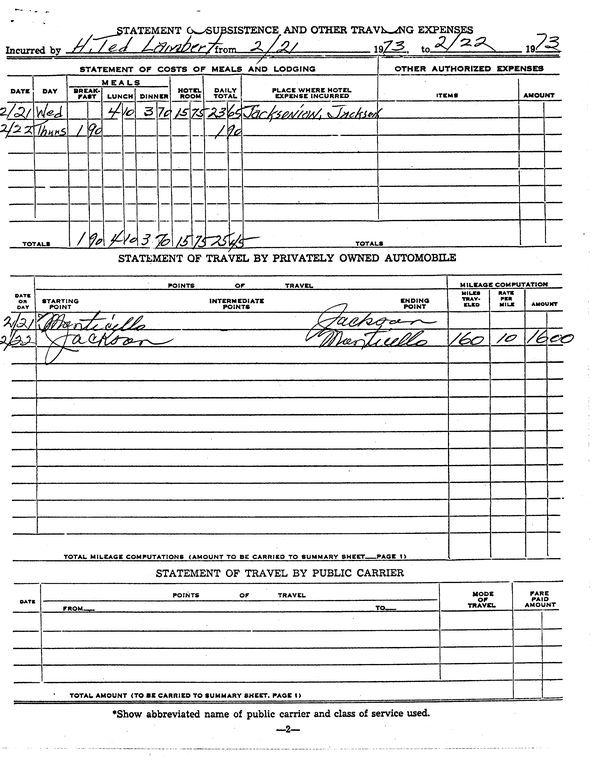 STATEMENT OF SUBSISTENCE AND OTHER TRAVELING EXPENSES
Incurred by H. Ted Lambert from 2/21 1973, to 2/22 1973
STATEMENT OF COSTS OF MEALS AND LODGING OTHER AUTHORIZED EXPENSES
DATE DAY MEALS BREAK-FAST LUNCH DINNER HOTEL ROOM DAILY TOTAL PLACE WHERE HOTEL EXPENSE INCURRED ITEMS AMOUNT
2/21 Wed 4 10 3 70 15 75 23 65 Jacksonian, Jackson
2/22 Thurs 1 90 1 90
TOTALS 1 90 4 10 3 70 15 75 25 45 TOTALS
STATEMENT OF TRAVEL BY PRIVATELY OWNED AUTOMOBILE
POINTS OF TRAVEL MILEAGE COMPUTATION
DATE OR DAY STARTING POINT INTERMEDIATE POINTS ENDING POINT MILES TRAV-ELED RATE PER MILE AMOUNT
2/21 Monticello Jackson
2/22 Jackson Monticello 160 10 16 00
TOTAL MILEAGE COMPUTATIONS (AMOUNT TO BE CARRIED TO SUMMARY SHEET—PAGE 1)
STATEMENT OF TRAVEL BY PUBLIC CARRIER
DATE POINTS OF TRAVEL MODE OF TRAVEL FARE PAID AMOUNT
FROM— TO—
TOTAL AMOUNT (TO BE CARRIED TO SUMMARY SHEET. PAGE 1)
*Show abbreviated name of public carrier and class of service used.
—2—